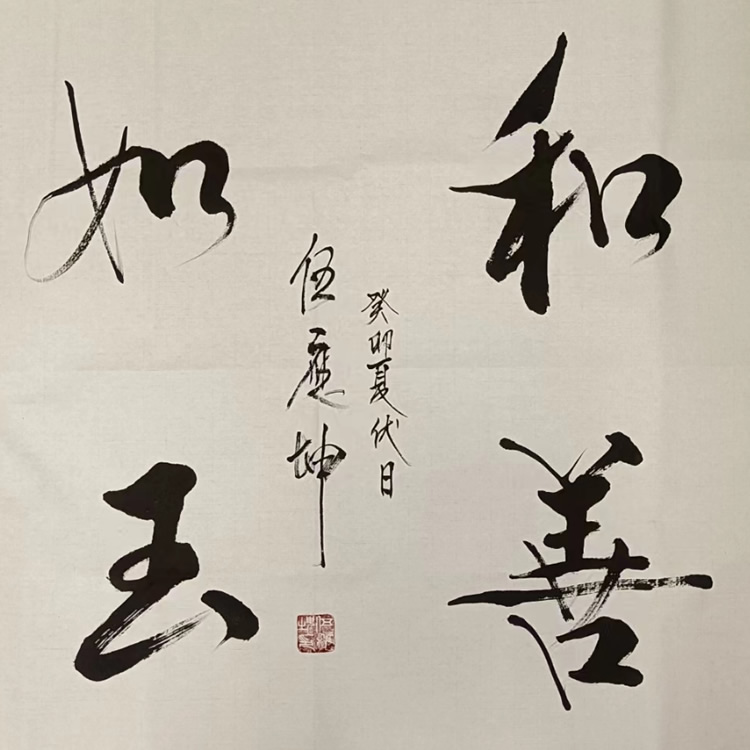 和善
如玉
癸卯夏伏日
伍應坤